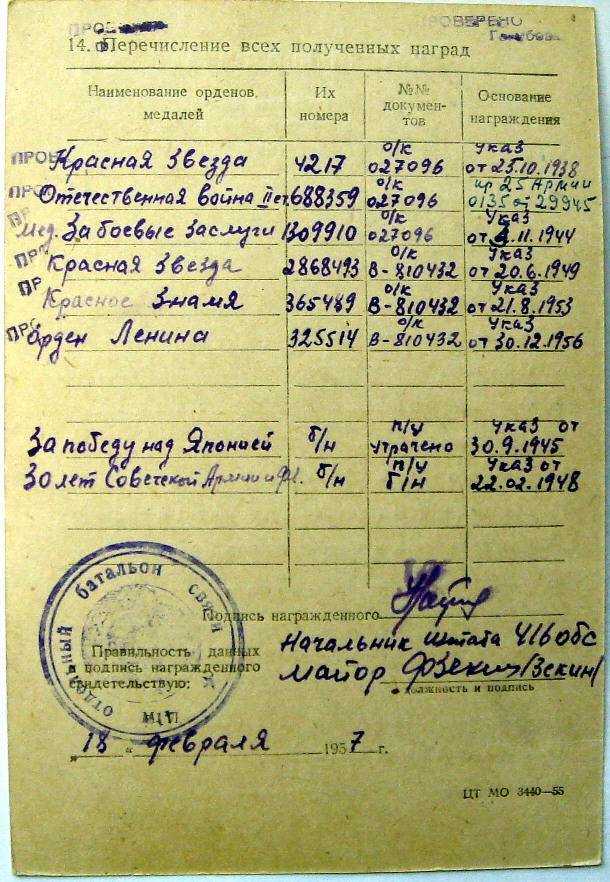 ПРОВЕРЕНО
14. Перечисление всех полученных наград
Наименование орденов, медалей
Их номера
№№ документов
Основание награждения
Красная Звезда 4217 о/к 027096 Указ от 25.10.1938
Отечественная война II ст. 688359 о/к 027096 пр 25 Армии 0135 от 29945
Мед. За боевые заслуги 1309910 о/к 027096 Указ от 11.1944
Красная Звезда 2868493 о/к В-810432 Указ от 20.6.1949
Красное Знамя 365489 о/к В-810432 Указ от 21.8.1953
Орден Ленина 325514 о/к В-810432 Указ от 30.12.1956
За победу над Японией б/н п/у утрачено Указ от 30.9.1945
30 лет Советской Армии и Фл. б/н п/у б/н Указ от 22.02.1948
отдельный батальон связи
Подпись награжденного
Правильность данных
и подпись награжденного
свидетельствую:
Начальник штаба 416 обс
майор
должность и подпись
М.П.
„18“ февраля 1957 г.
ЦТ МО 3440—55